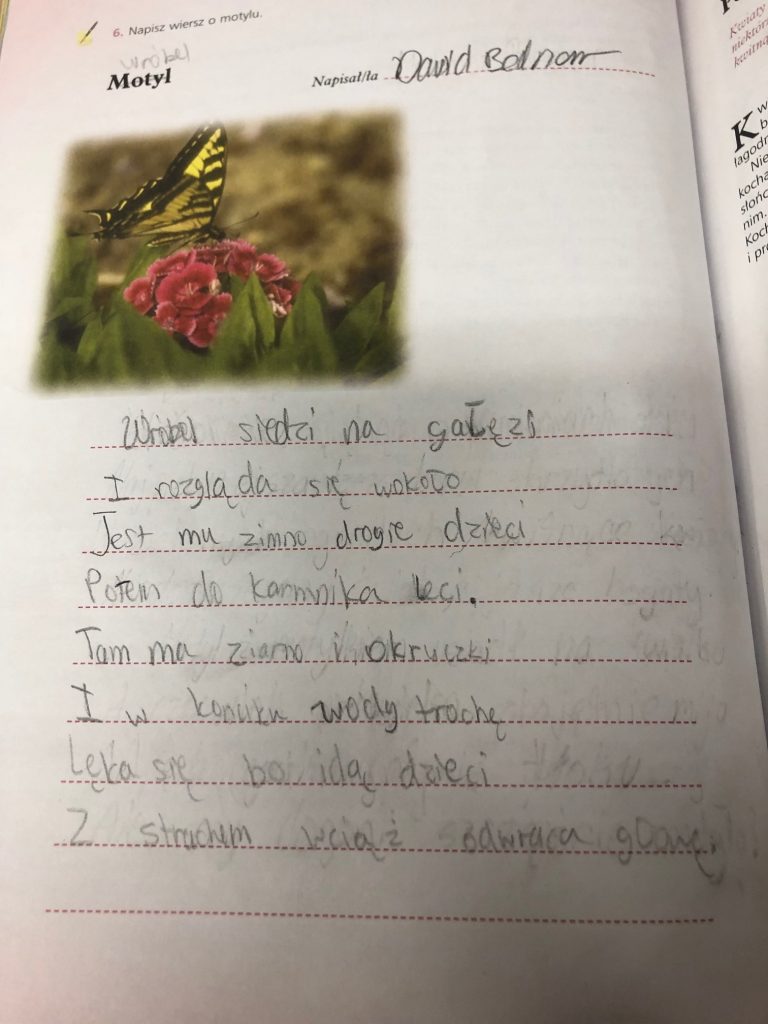 6. Napisz wiersz o motylu.
wróbel
Motyl
Napisał/ła Dawid
Wróbel siedzi na gałęzi
I rozgląda się wokoło
Jest mu zimno drogie dzieci
Potem do karmnika leci.
Tam ma ziarno i okruczki
I w kąciku wody trochę
Lęka się bo idą dzieci
Z strachem wciąż odwraca głowę.
Kwiaty
niektór
kwitną
K w
b
łagodn
Nie
kocha
słońc
nim.
Koch
i pr